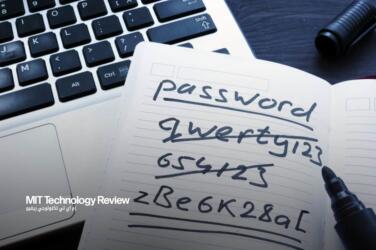 password
qwerty123
654123
zBe6K28a[
MIT Technology Review
إم آي تي تكنولوجي ريفيو